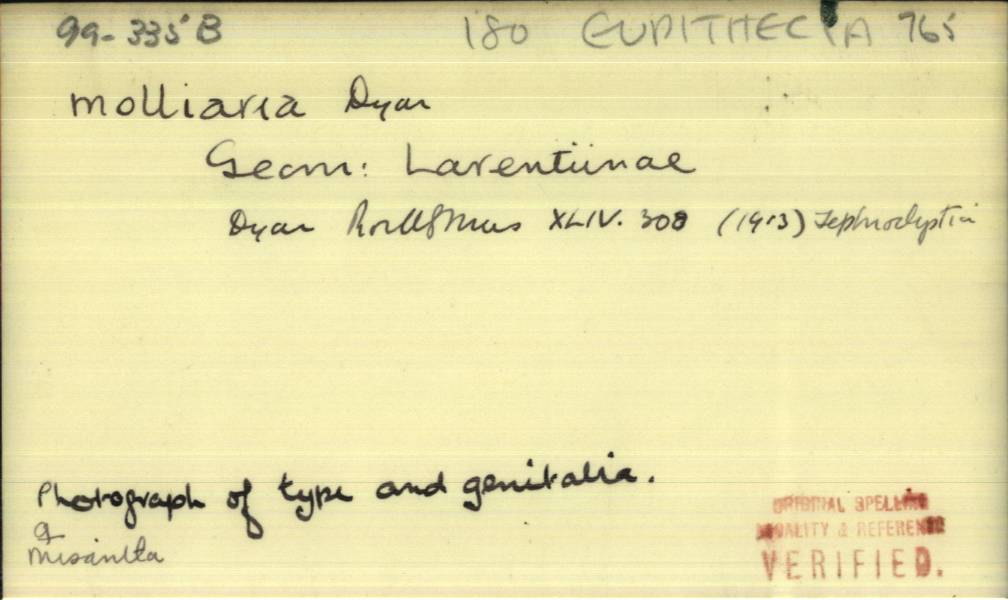 99-335 B 180 EUPITHECIA 765
molliaria Dyar
Geom: Larentiinae
Dyar XLIV. 308 (1913) Tephroclystia
Photograph of type and genitalia.
Misantla
ORIGINAL SPELLING
LOCALITY & REFERENCE
VERIFIED.